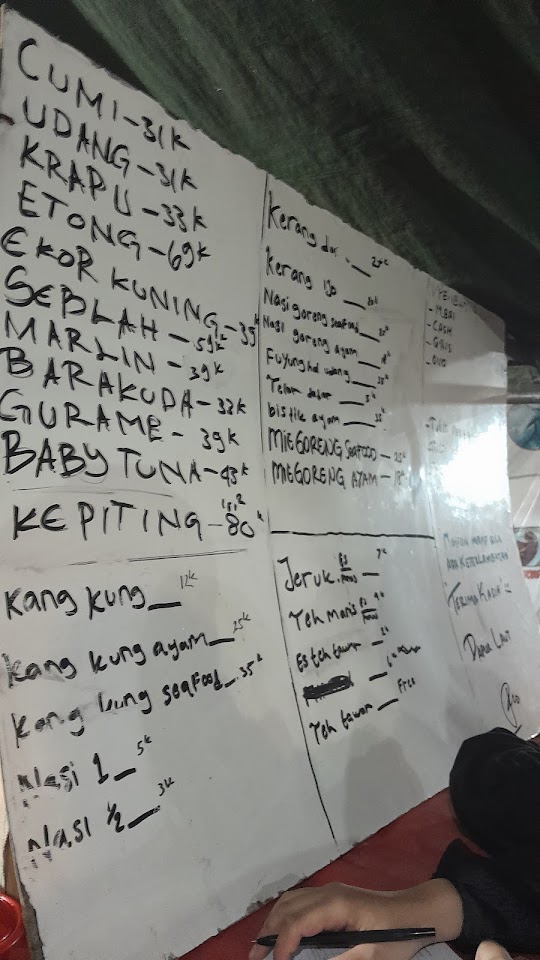 CUMI-31K
UDANG-31K
KRAPU-33K
ETONG-69K
EKOR KUNING-39K
SEBLAH-59K
MARLIN-39K
BARAKUDA-33K
GURAME-39K
BABY TUNA-43K
KEPITING-80K
Kang kung 12K
kang kung ayam 25K
kang kung seafood 35K
Nasi 1 5K
NASI 1/2 3K
Kerang
Kerang
Nasi goreng seafood
Nasi goreng ayam
Fuyunghai udang
Telor dadar
bistik ayam
MIEGORENG SEAFOOD
MIEGORENG AYAM
Jeruk Es 7K
Teh Manis
Es teh tawar
Teh tawar Free
- CASH
- QRIS
- OVO
MOHON MAAF BILA
ADA KETERLAMBATAN
"TERIMA KASIH"